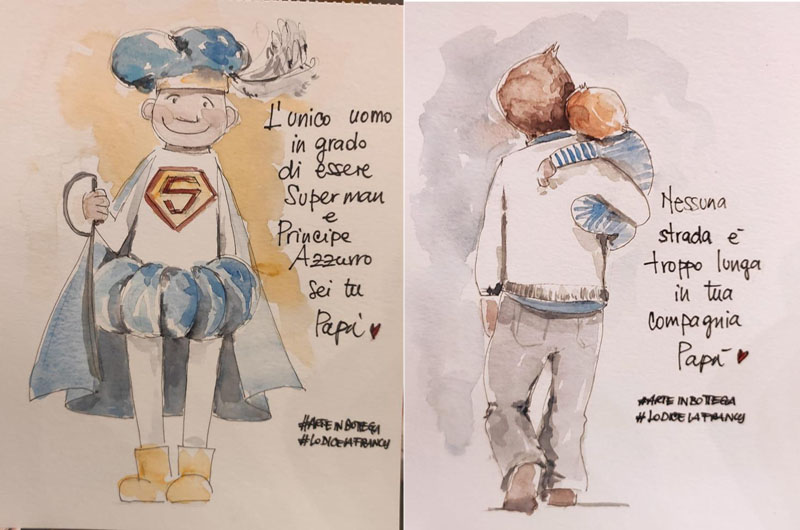 L'unico uomo
in grado
di essere
Superman
e
Principe
Azzurro
sei tu
Papà
#ARTEINBOTTEGA
#LODICELAFRANCY
S
Nessuna
strada è
troppo lunga
in tua
compagnia
Papà
#ARTEINBOTTEGA
#LODICELAFRANCY